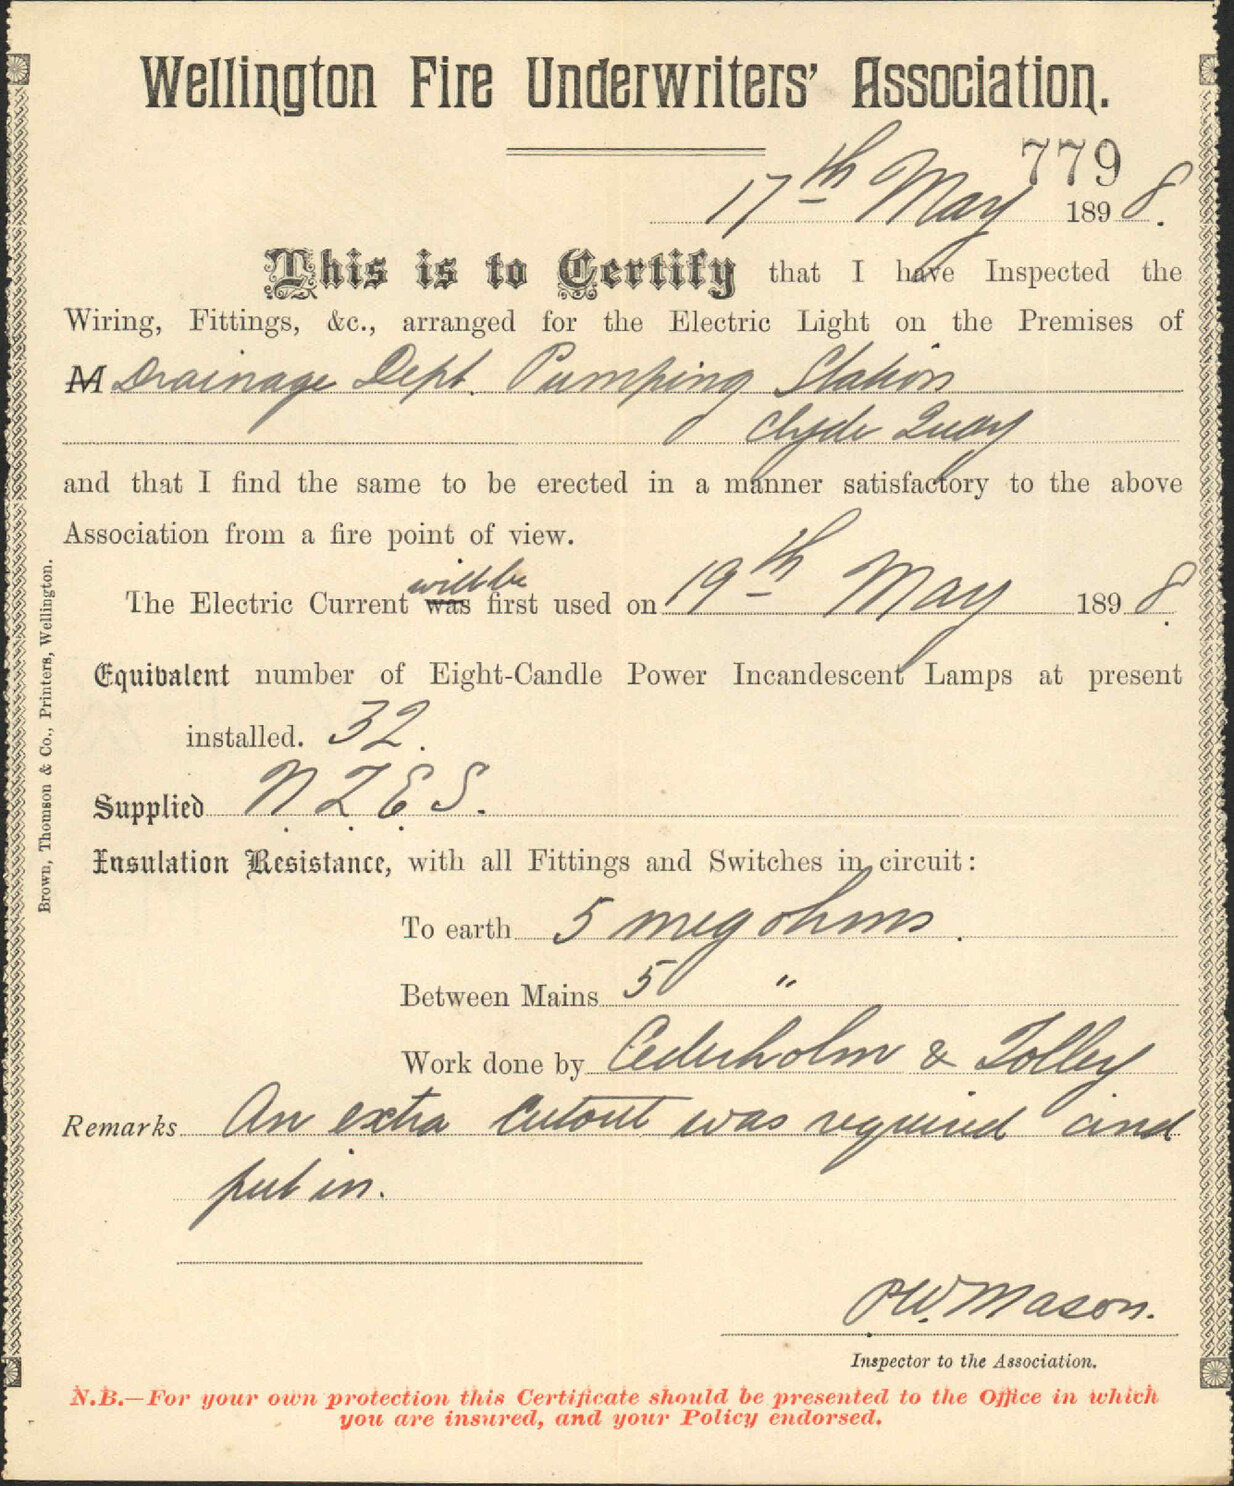 Wellington Fire Underwriters' Association.
779
17th May 1898.
This is to Certify that I have Inspected the
Wiring, Fittings, &c., arranged for the Electric Light on the Premises of
M Drainage Dept. Pumping Station
Clyde Quay
and that I find the same to be erected in a manner satisfactory to the above
Association from a fire point of view.
will be
The Electric Current was first used on 19th May 1898.
Equivalent number of Eight-Candle Power Incandescent Lamps at present
installed. 32.
Supplied N.Z.E.S.
Insulation Resistance, with all Fittings and Switches in circuit:
To earth 5 megohms.
Between Mains 5 "
Work done by Cederholm & Tolley
Remarks An extra Cutout was required and
put in.
PW. Mason.
Inspector to the Association.
N.B.—For your own protection this Certificate should be presented to the Office in which
you are insured, and your Policy endorsed.
Brown, Thomson & Co., Printers, Wellington.